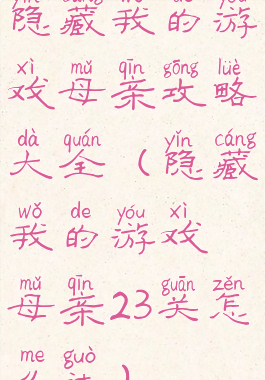 隐藏我的游
xì mǔ qīn gōng lüè
戏母亲攻略
dà quán yǐn cáng
大全（隐藏
wǒ de yóu xì
我的游戏
mǔ qīn guān zěn
母亲23关怎
me guò